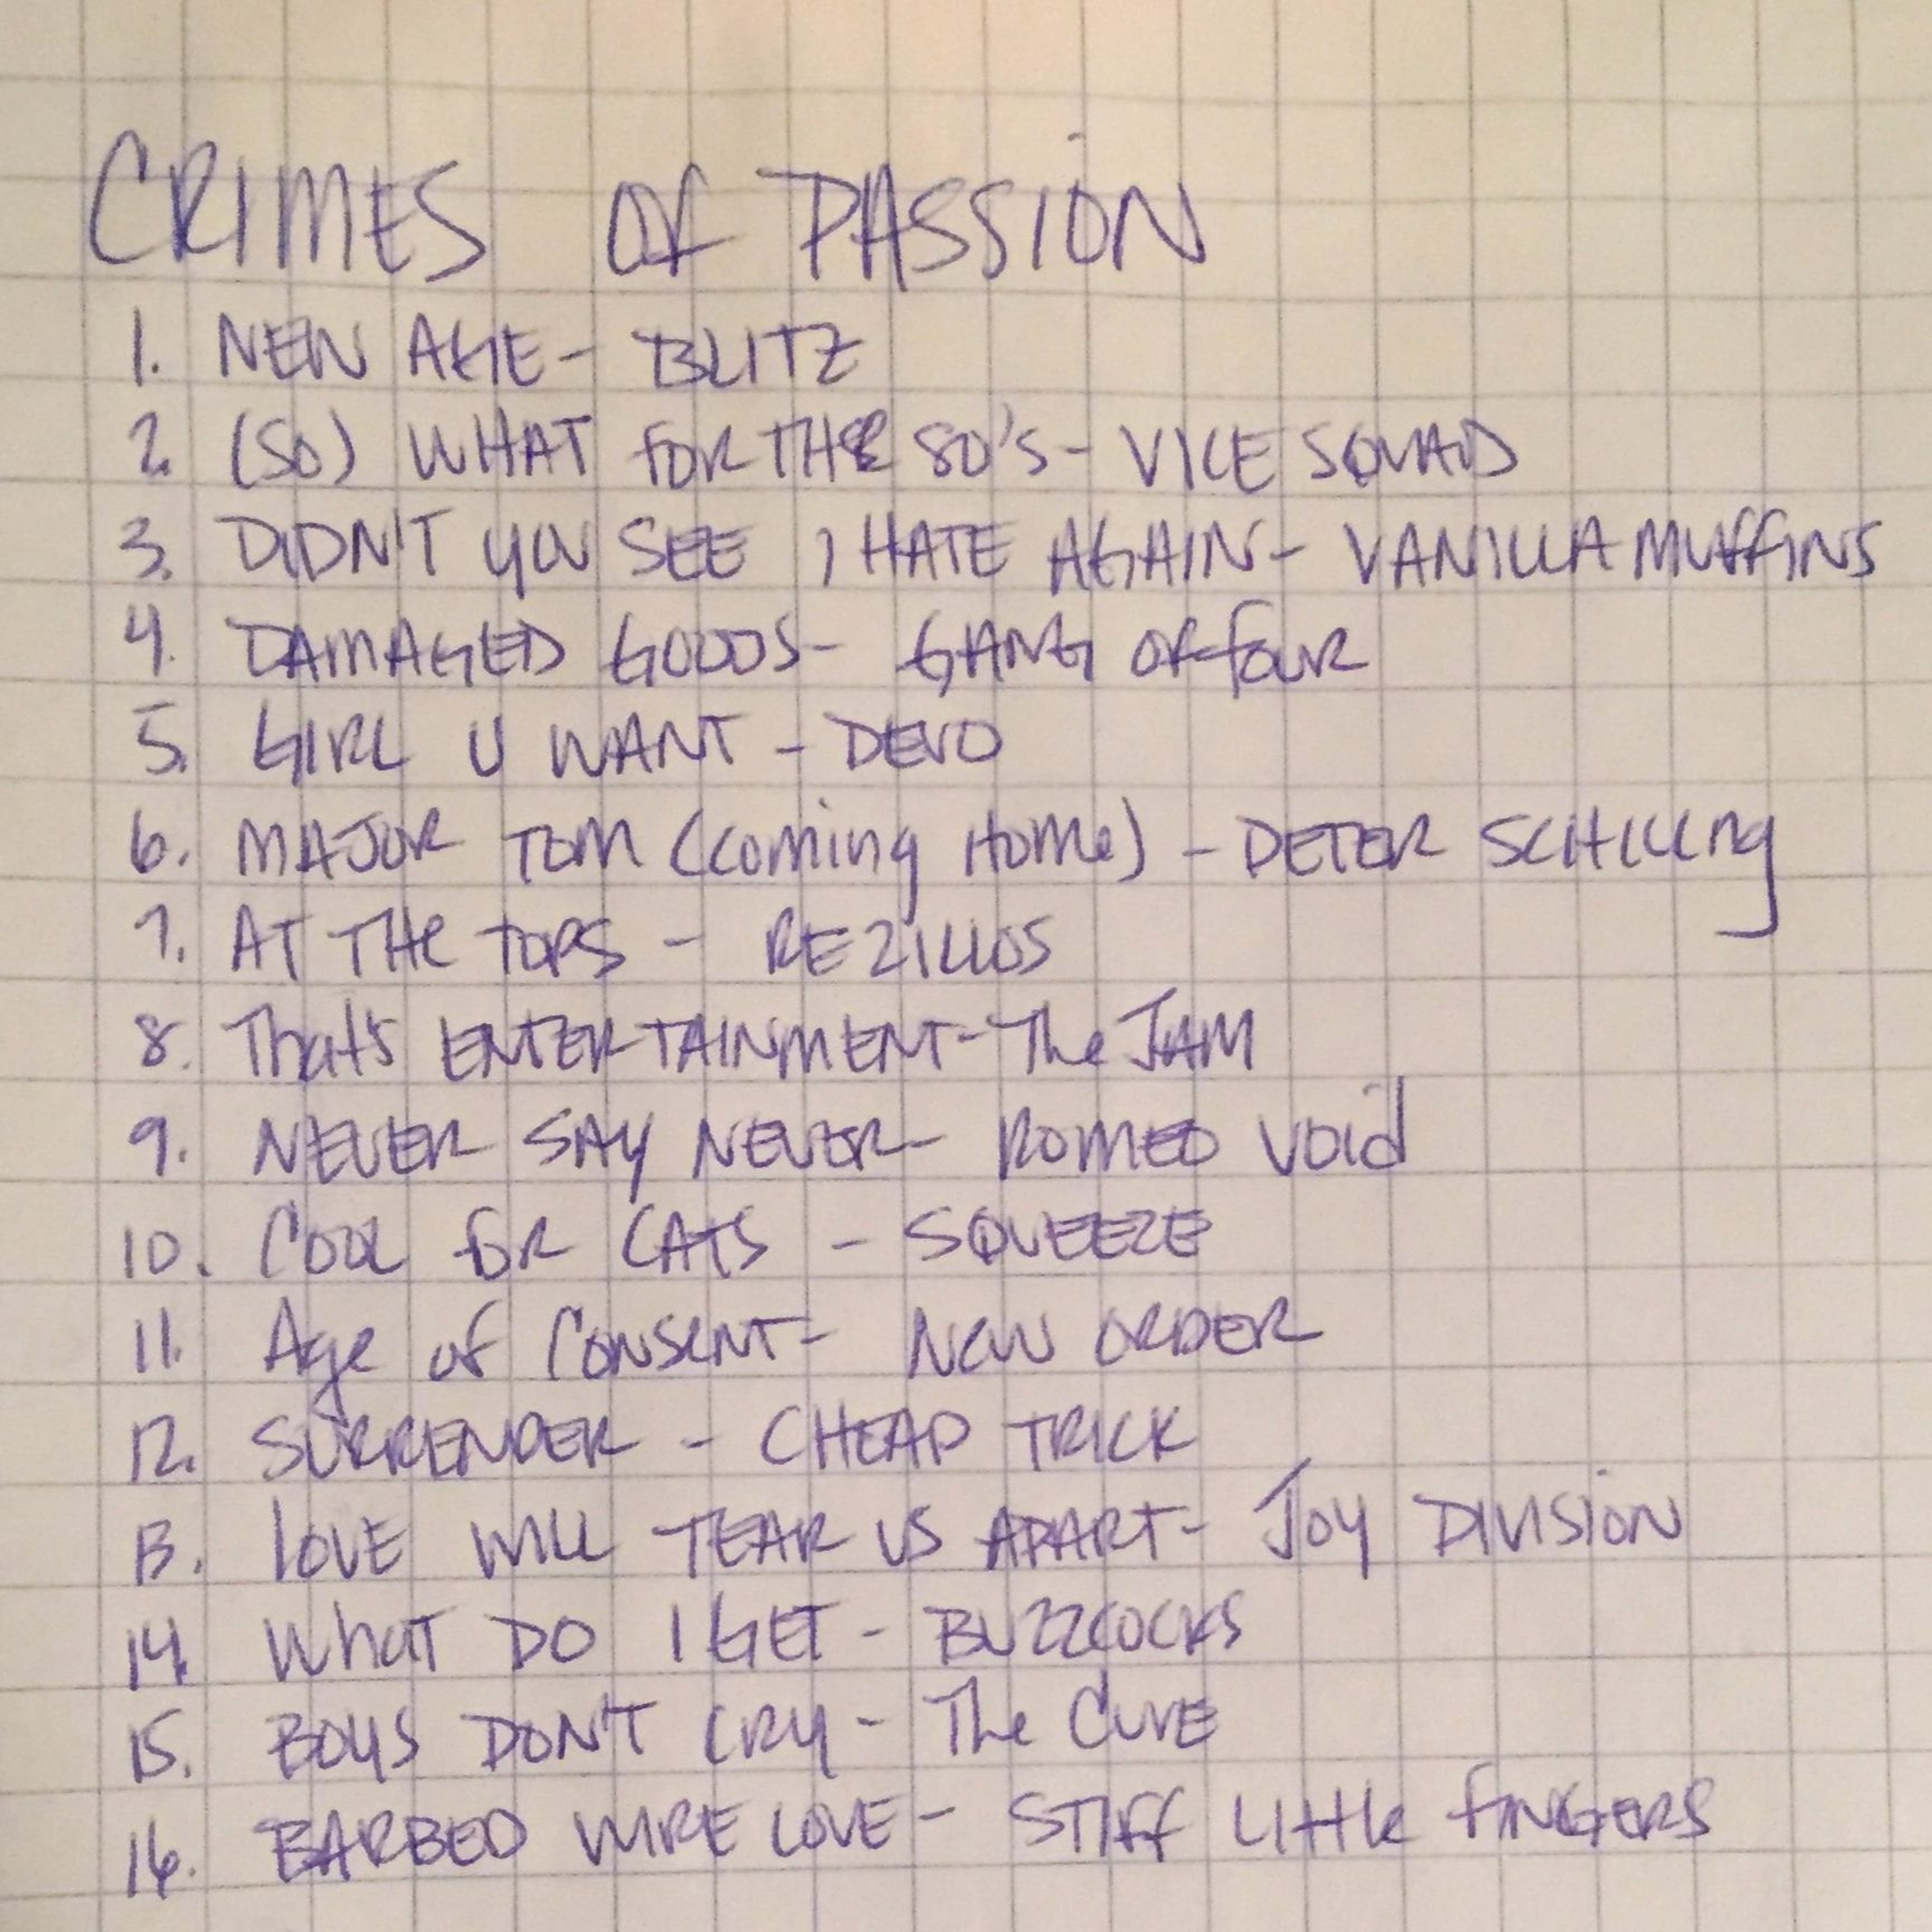 CRIMES OF PASSION
1. NEW AGE - BLITZ
2. (SO) WHAT FOR THE 80'S - VICE SQUAD
3. DIDN'T YOU SEE I HATE AGAIN - VANILLA MUFFINS
4. DAMAGED GOODS - GANG OF FOUR
5. GIRL U WANT - DEVO
6. MAJOR TOM (Coming Home) - DETER SCHILLING
7. AT THE TOPS - REZILLOS
8. That's ENTERTAINMENT - The JAM
9. NEVER SAY NEVER - ROMEO Void
10. COOL for CATS - SQUEEZE
11. Age of CONSENT - NEW ORDER
12. SURRENDER - CHEAP TRICK
13. LOVE WILL TEAR US APART - JOY DIVISION
14. WhaT DO I GET - BUZZCOCKS
15. BOYS DON'T CRY - The CURE
16. BARBED WIRE LOVE - STIFF LITTLE FINGERS